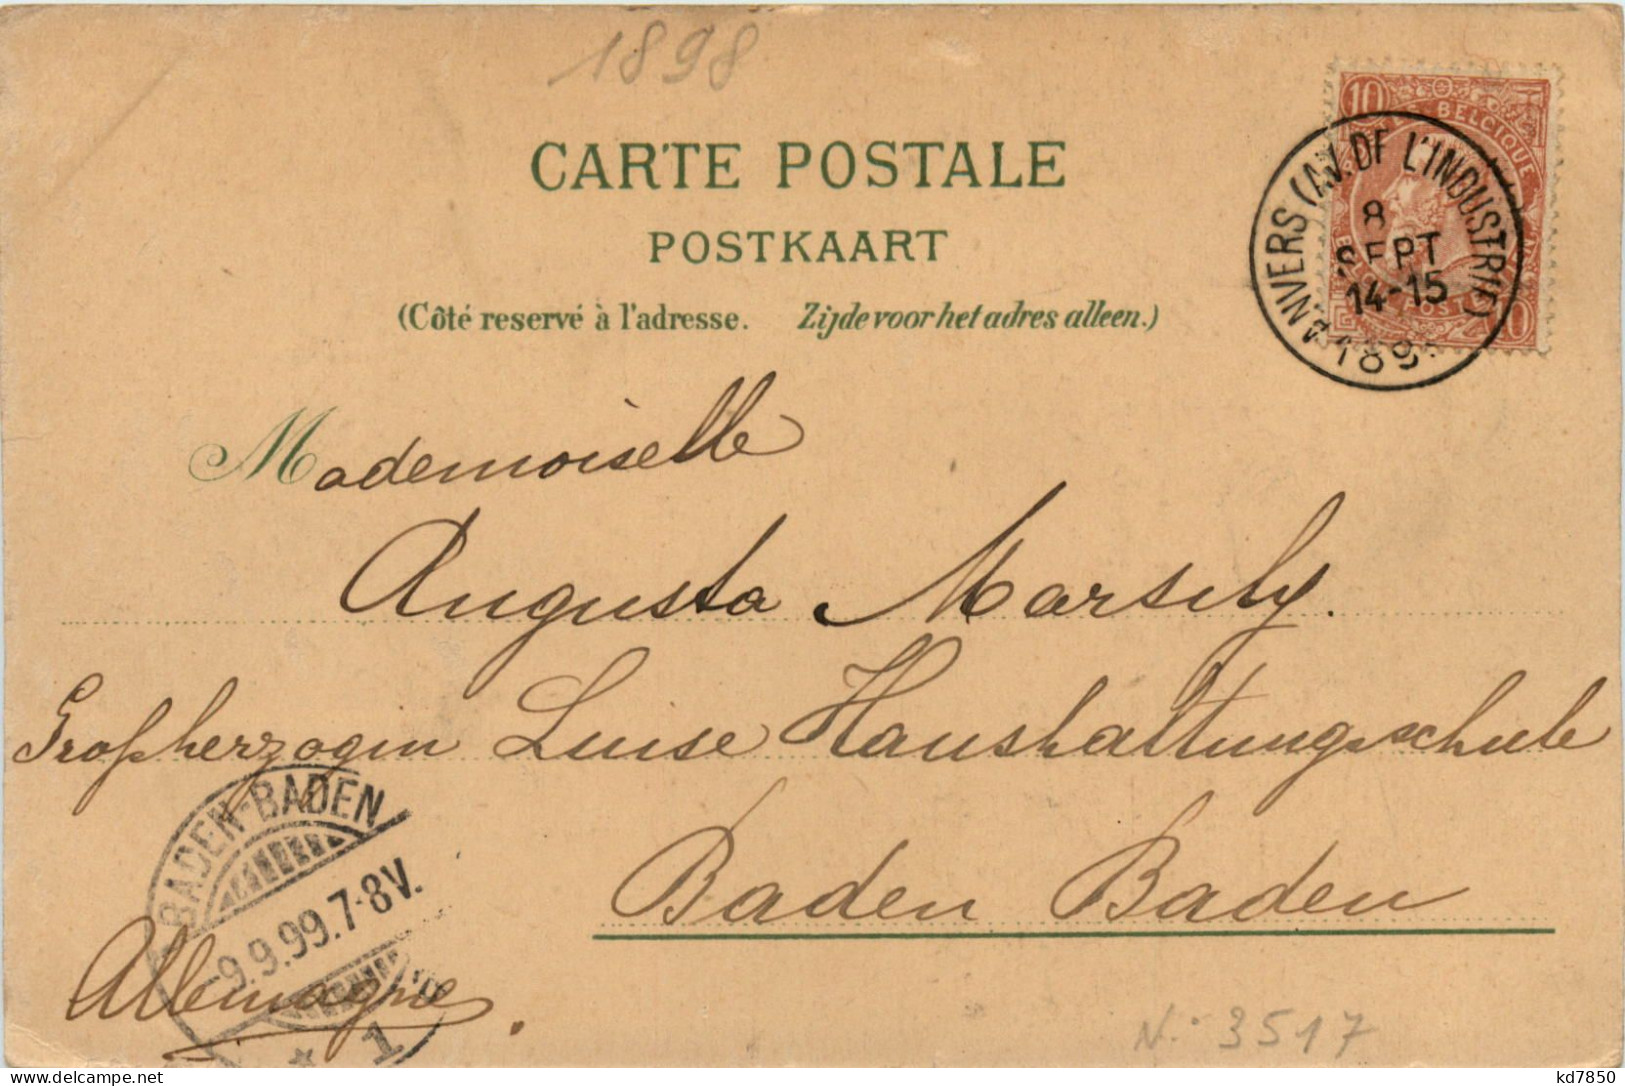 1898
CARTE POSTALE
POSTKAART
(Côté reservé à l'adresse. Zijde voor het adres alleen.)
10
BELGIQUE
ANVERS (AV. DE L'INDUSTRIE)
8
SEPT
14-15
189
Mademoiselle
Augusta Marsily.
Großherzogin Luise Haushaltungsschule
Baden Baden
BADEN-BADEN
-9.9.99.7-8V.
* 1
Allemagne.
N. 3517
kd7850